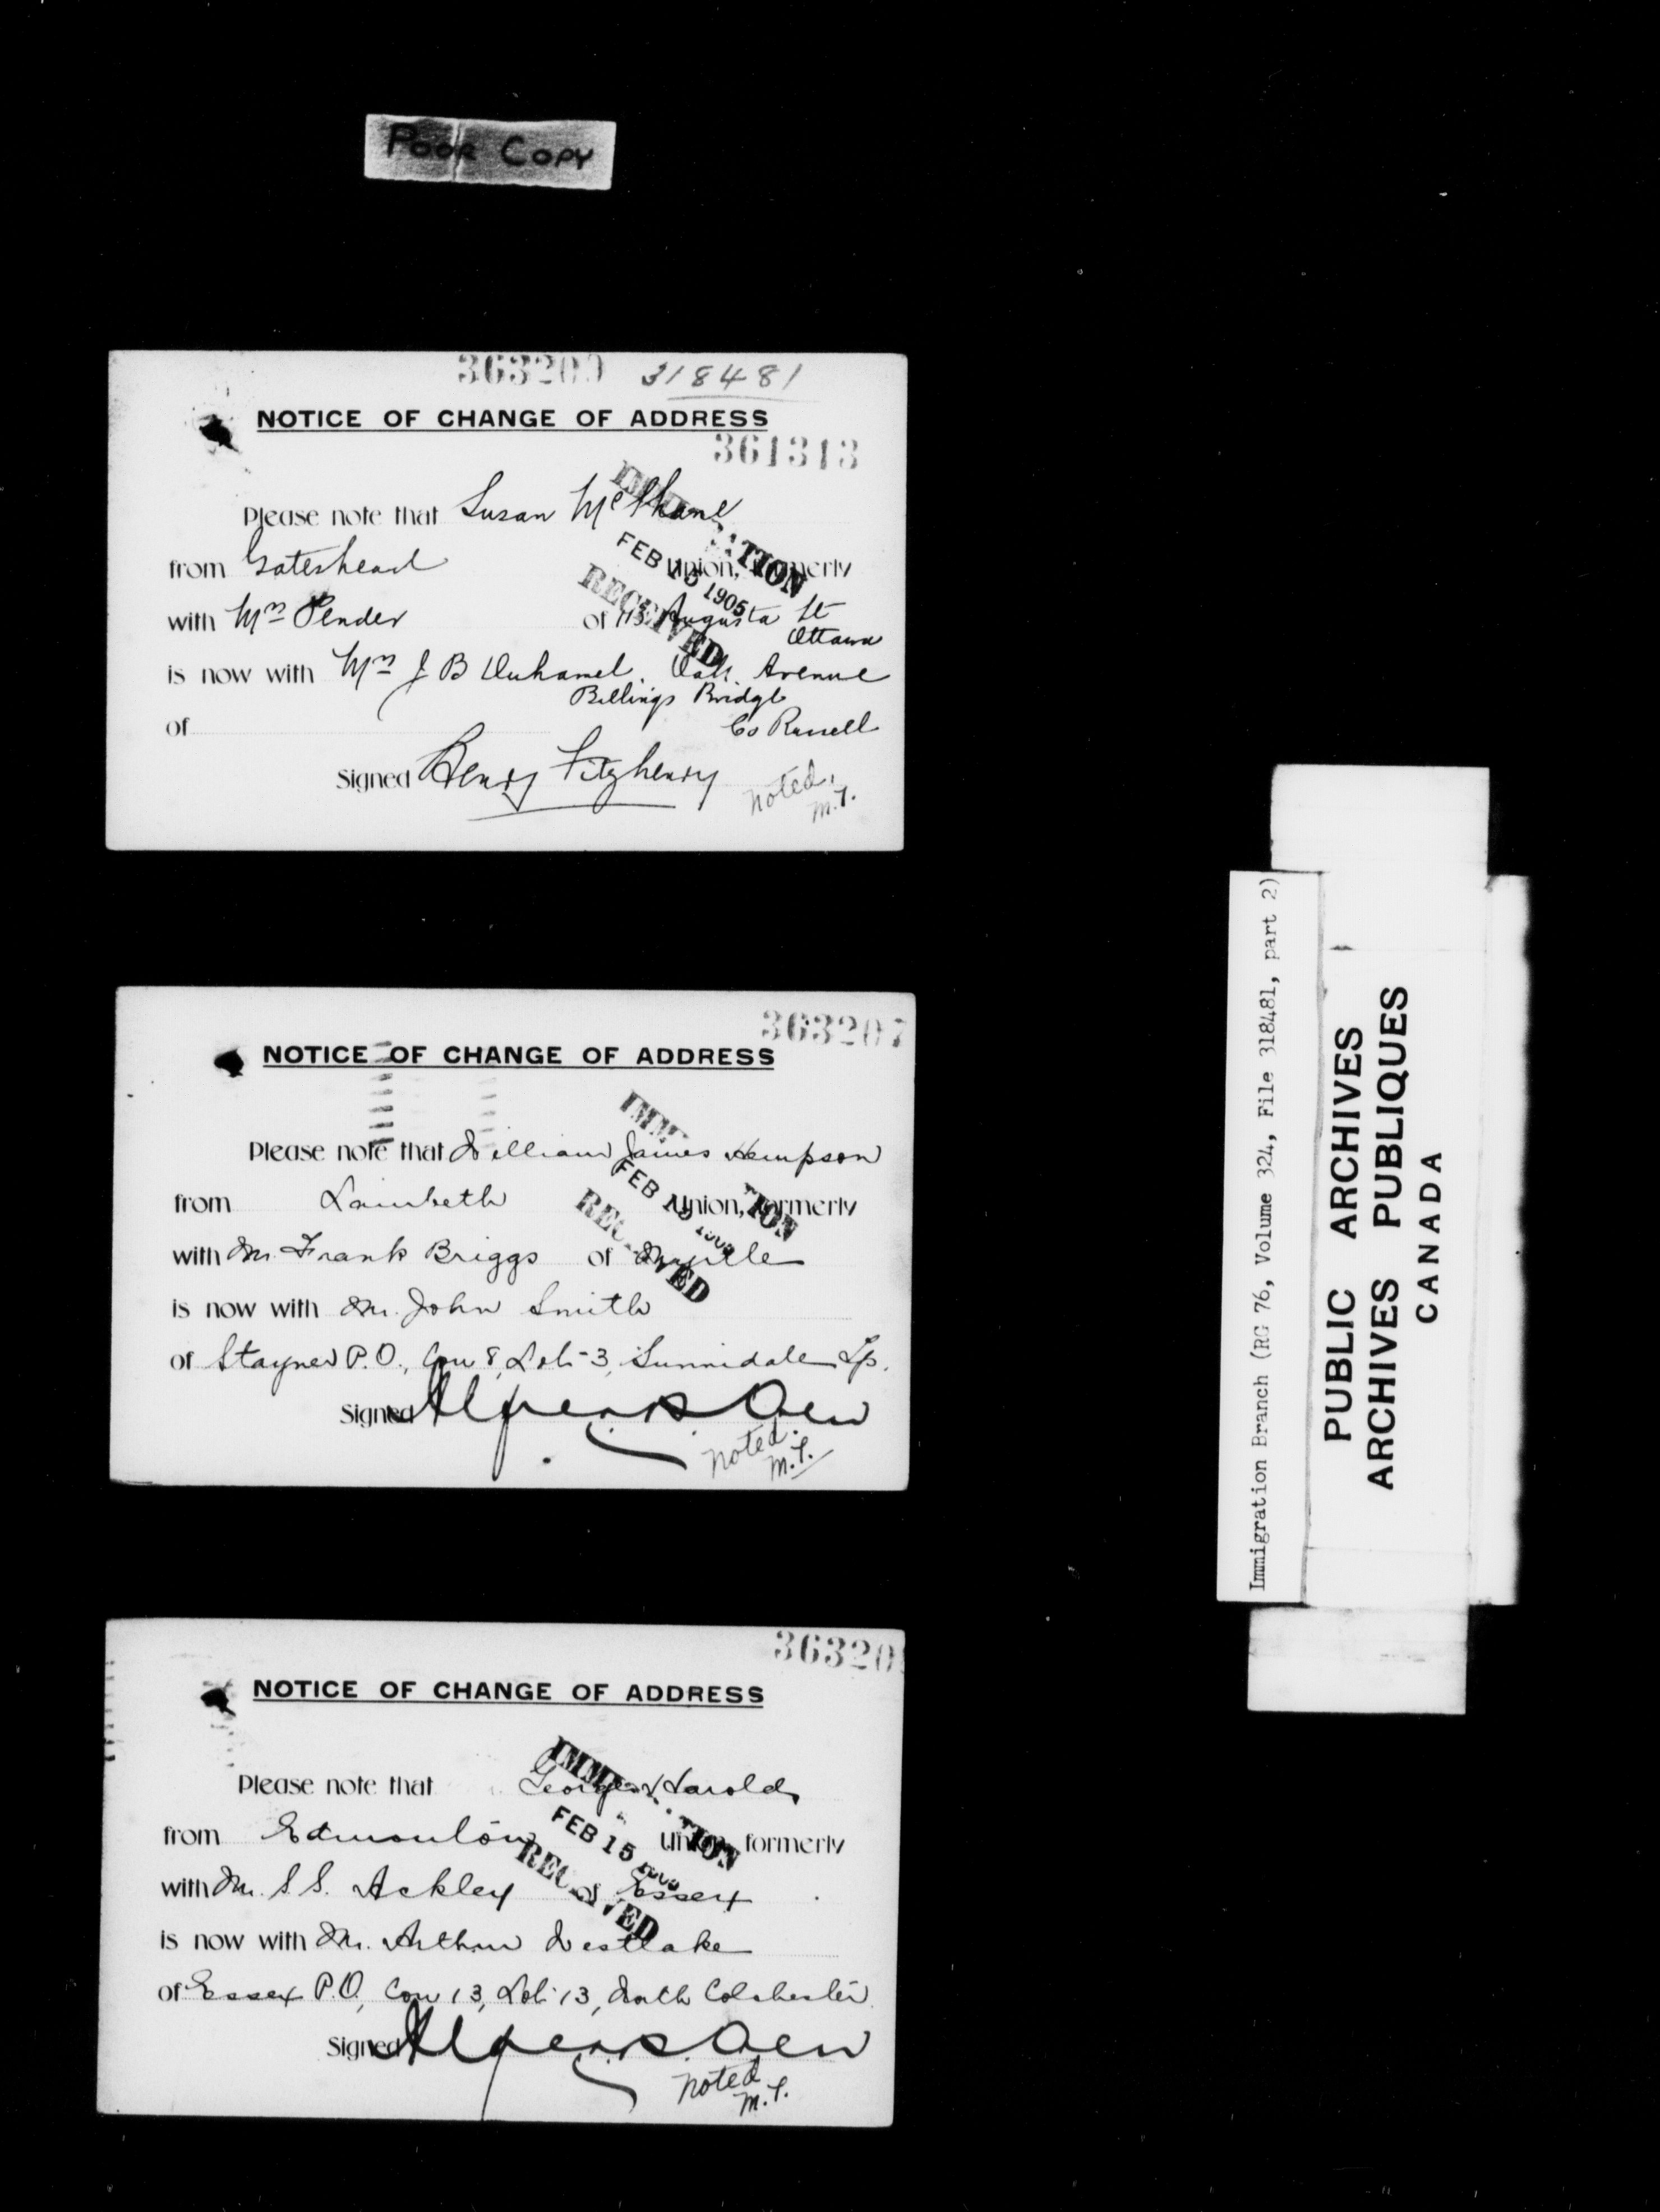 Poor Copy
363209 318481
NOTICE OF CHANGE OF ADDRESS
361313
Please note that Susan McShane
from Gateshead Union, formerly
with Mrs Pender of 113 Augusta St
Ottawa
is now with Mrs J B Duhamel. Oak. Avenue
Billings Bridge
of Co Russell
Signed Henry Fitzhenry
noted.
M.T.
IMMIGRATION
FEB 15 1905
RECEIVED
363207
NOTICE OF CHANGE OF ADDRESS
Please note that William James Hempson
from Lambeth Union, formerly
with Mr. Frank Briggs of Myrtle
is now with Mr. John Smith
of Stayner P.O., Con 8, Lot 3, Sunnidale Tp.
Signed Owen
noted.
M.T.
IMMIGRATION
FEB 15
RECEIVED
36320
NOTICE OF CHANGE OF ADDRESS
Please note that George Harold
from Edmonton Union, formerly
with Mr. S. S. Ackley of Essex
is now with Mr. Arthur Westlake
of Essex P.O, Con 13, Lot 13, South Colchester
Signed Owen
noted
M.T.
IMMIGRATION
FEB 15
RECEIVED
Immigration Branch (RG 76, Volume 324, File 318481, part 2)
PUBLIC ARCHIVES
ARCHIVES PUBLIQUES
CANADA